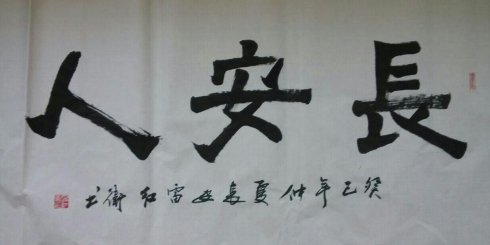 長安人
癸巳年仲夏長安雷紅衛書